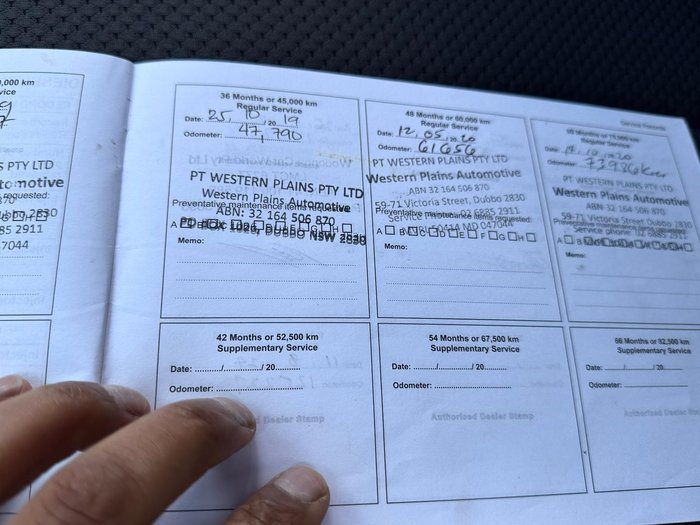 ,000 km
vice
S PTY LTD
tomotive
requested:
2830
85 2911
7044
36 Months or 45,000 km
Regular Service
Date: 25, 10 / 20 19
Odometer: 47,790
PT WESTERN PLAINS PTY LTD
Western Plains Automotive
Preventative maintenance items requested:
ABN: 32 164 506 870
A B C D E F G H
PO BOX 1026, DUBBO NSW 2830
Memo:
48 Months or 60,000 km
Regular Service
Date: 12, 05, 20 20
Odometer: 61656
PT WESTERN PLAINS PTY LTD
Western Plains Automotive
ABN 32 164 506 870
59-71 Victoria Street, Dubbo 2830
Preventative maintenance items requested:
Service phone: 02 6885 2911
A B C D E F G H
MD 047044
Memo:
Service Records
60 Months or 75,000 km
Regular Service
Date: / 10 / 20 20
Odometer: 73986km
PT WESTERN PLAINS PTY LTD
Western Plains Automotive
ABN 32 164 506 870
59-71 Victoria Street, Dubbo 2830
Service phone: 02 6885 2911
Memo:
42 Months or 52,500 km
Supplementary Service
Date: ......../......../ 20.........
Odometer: ........................
d Dealer Stamp
54 Months or 67,500 km
Supplementary Service
Date: ......../......../ 20.........
Odometer: ........................
Authorised Dealer Stamp
66 Months or 82,500 km
Supplementary Service
Date: ......../......../ 20.........
Odometer: ........................
Authorised Dealer Stamp